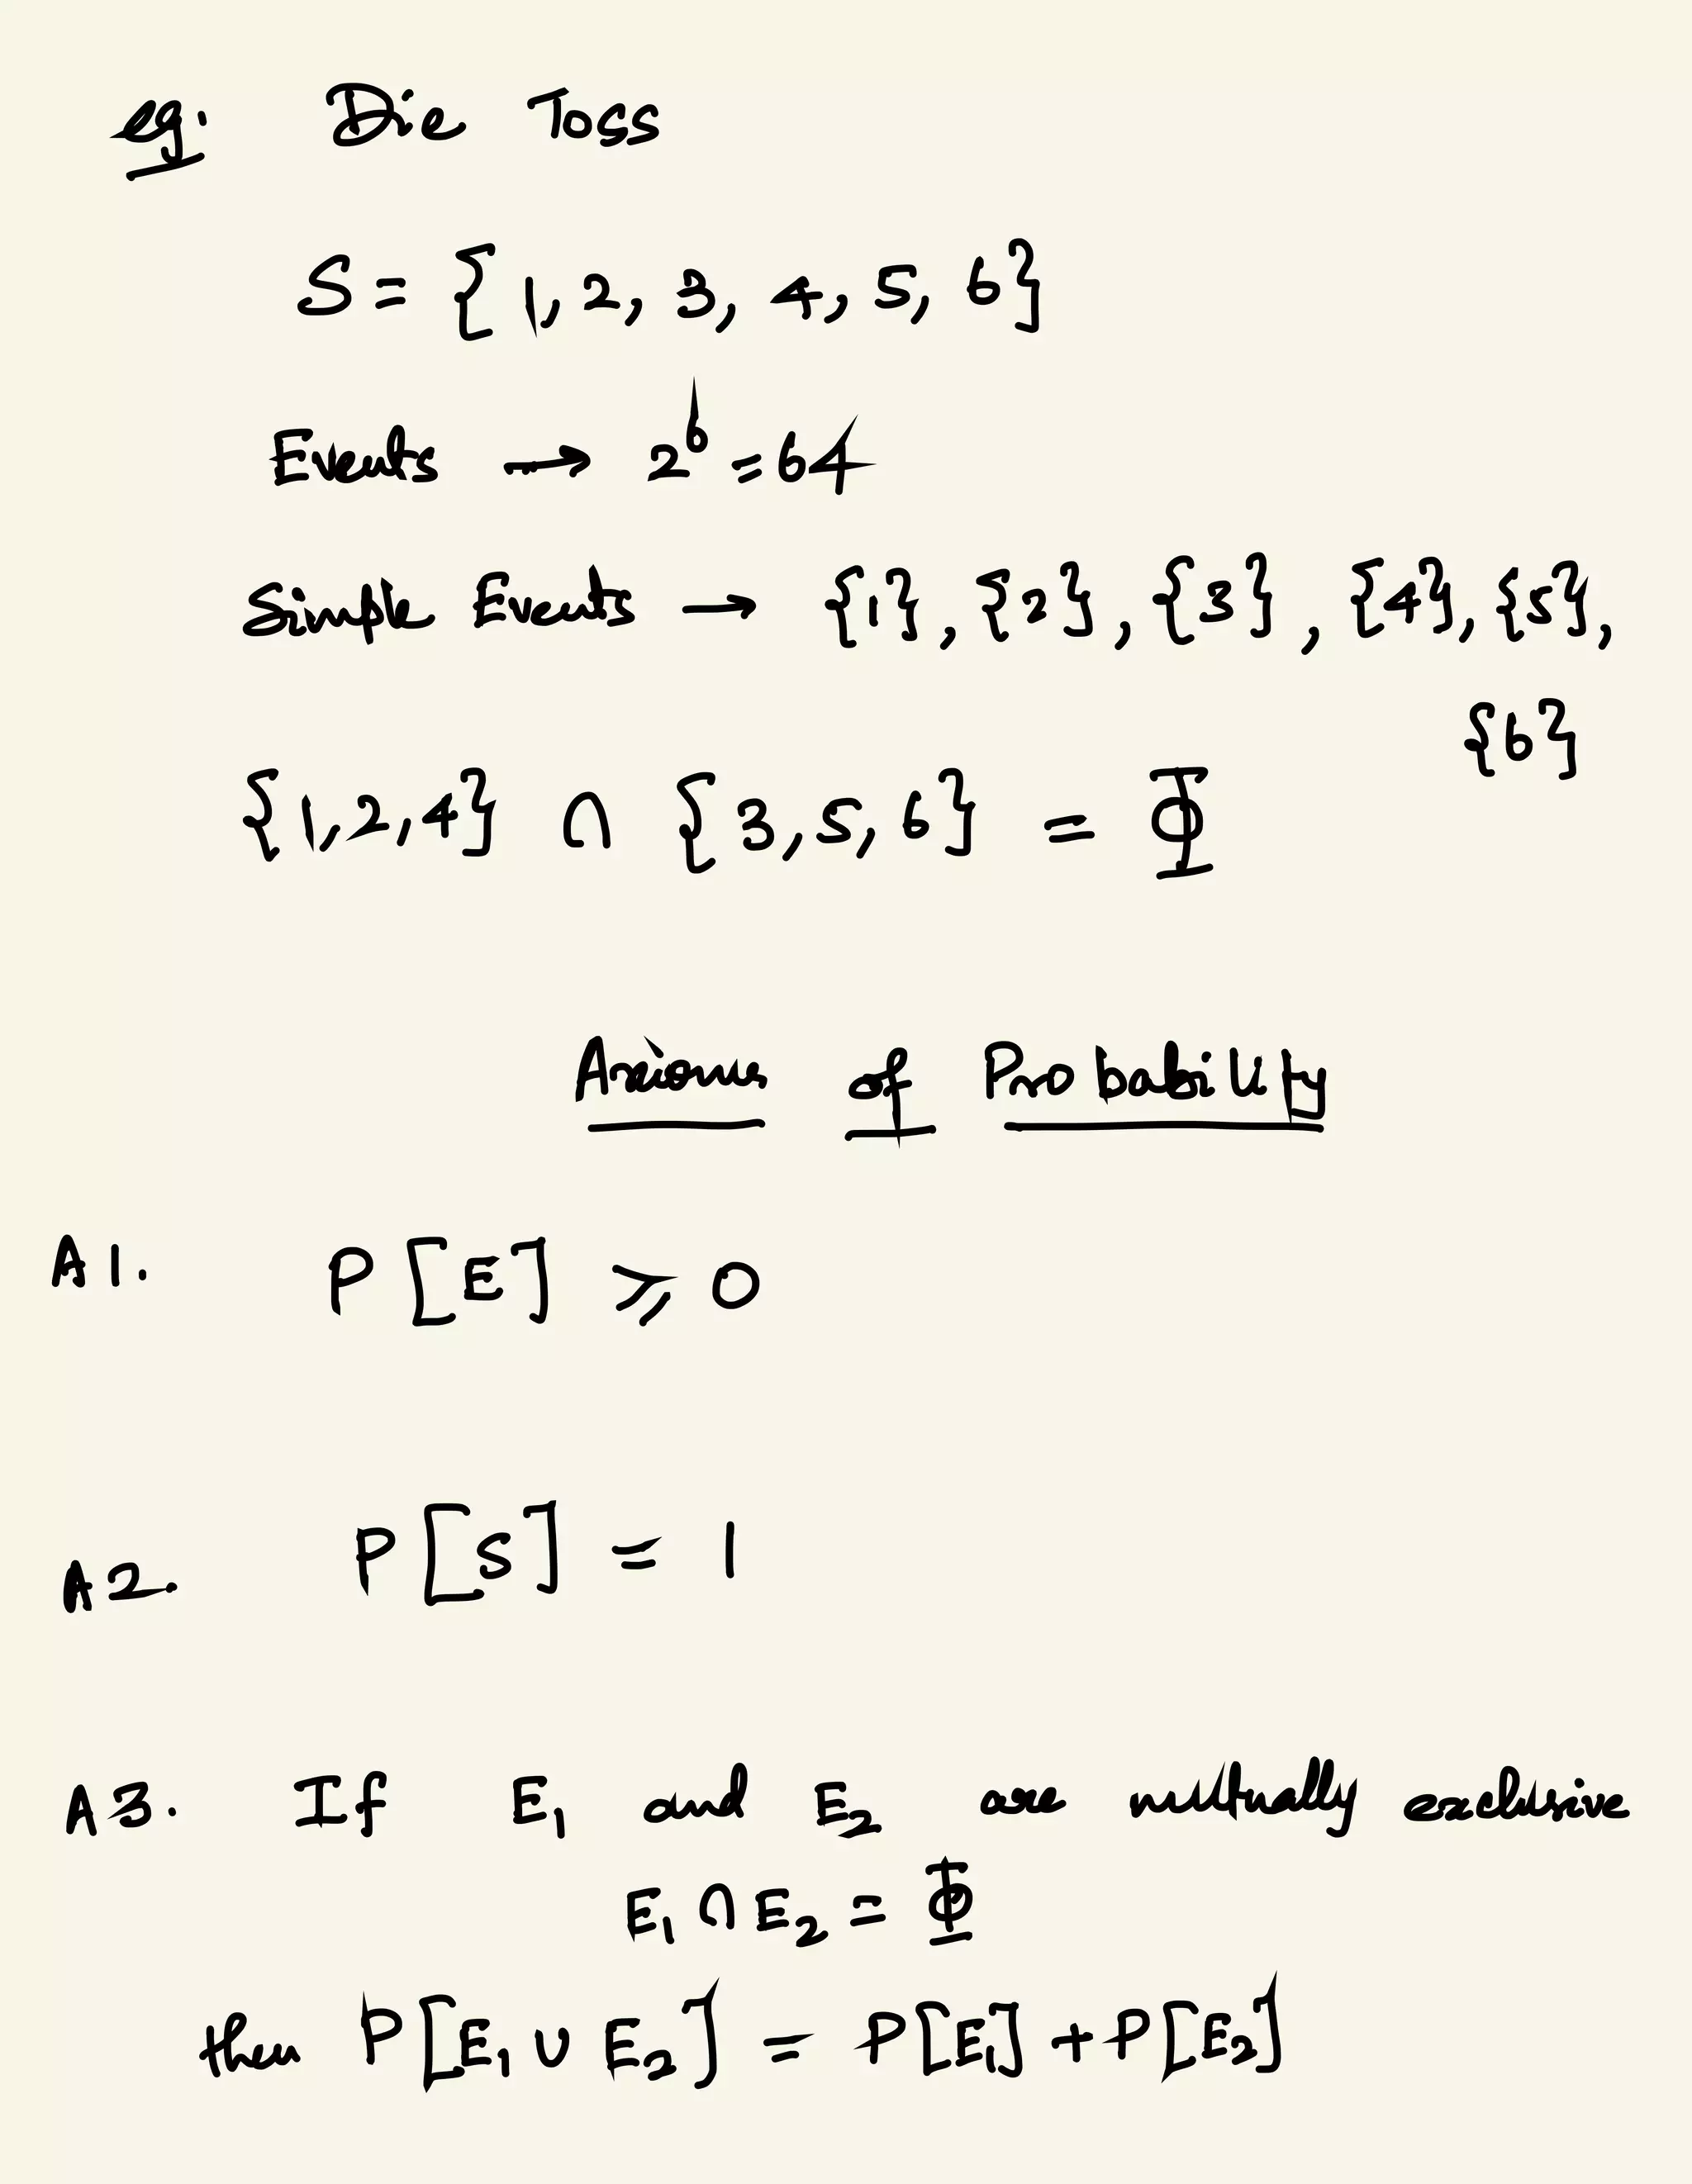 eg. Die Toss
S = { 1, 2, 3, 4, 5, 6 }
Events → 2⁶ = 64
Simple Events → {1}, {2}, {3}, {4}, {5},
{6}
{1,2,4} ∩ {3,5,6} = Φ
Axioms of Probability
A1. P[E] ⩾ 0
A2. P[S] = 1
A3. If E₁ and E₂ are mutually exclusive
E₁ ∩ E₂ = Φ
then P[E₁ ∪ E₂] = P[E₁] + P[E₂]